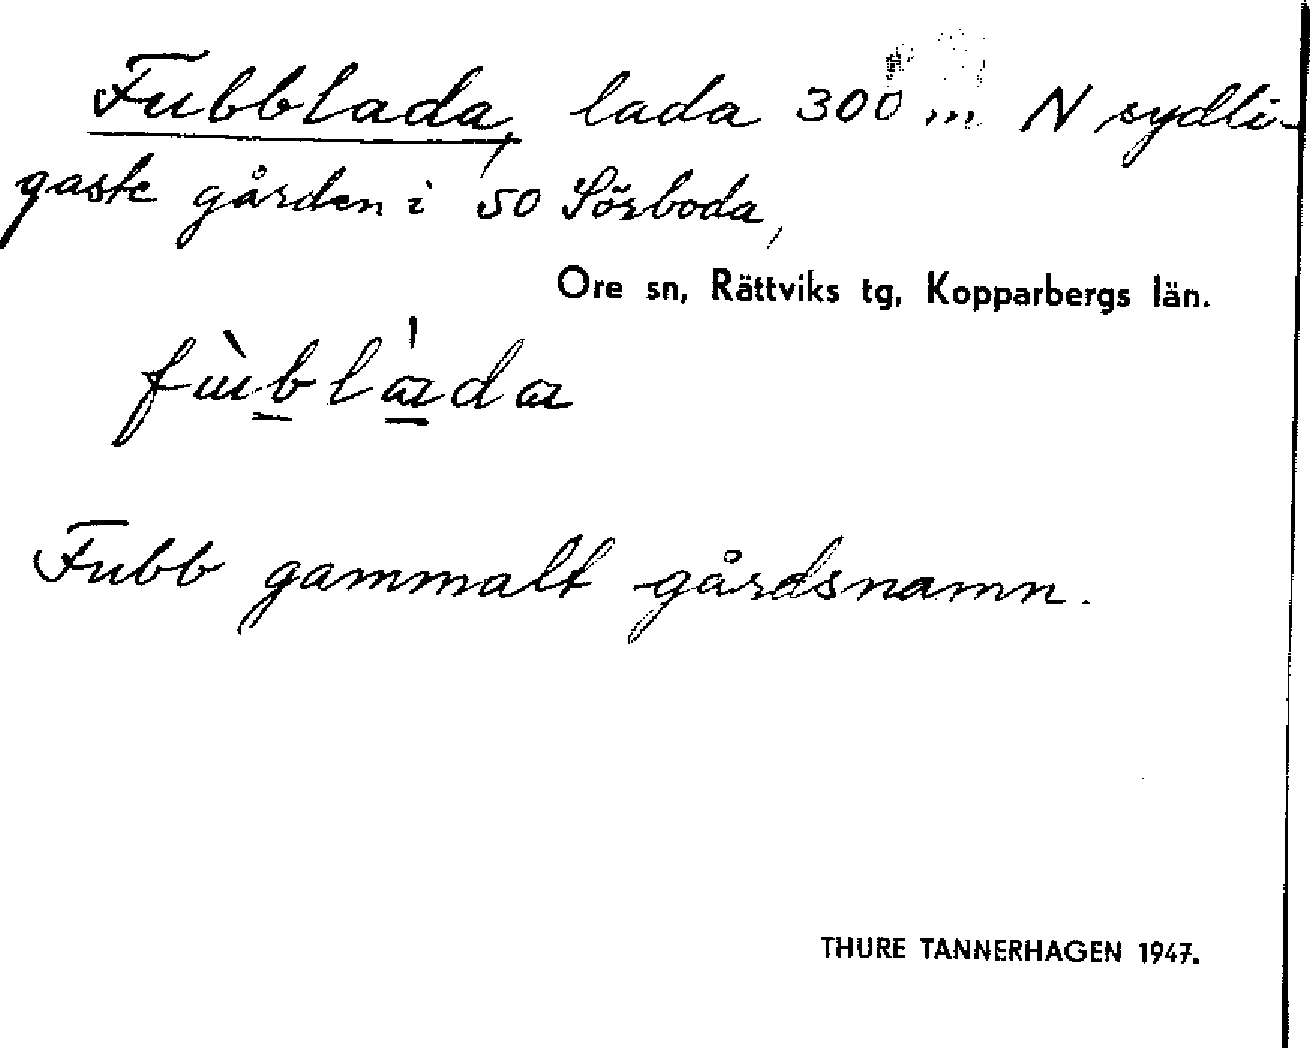 Fubblada, lada 300 m N sydli-
gaste gården i 50 Sörboda,
Ore sn, Rättviks tg, Kopparbergs län.
fùb̲lá̲da
Fubb gammalt gårdsnamn.
THURE TANNERHAGEN 1947.